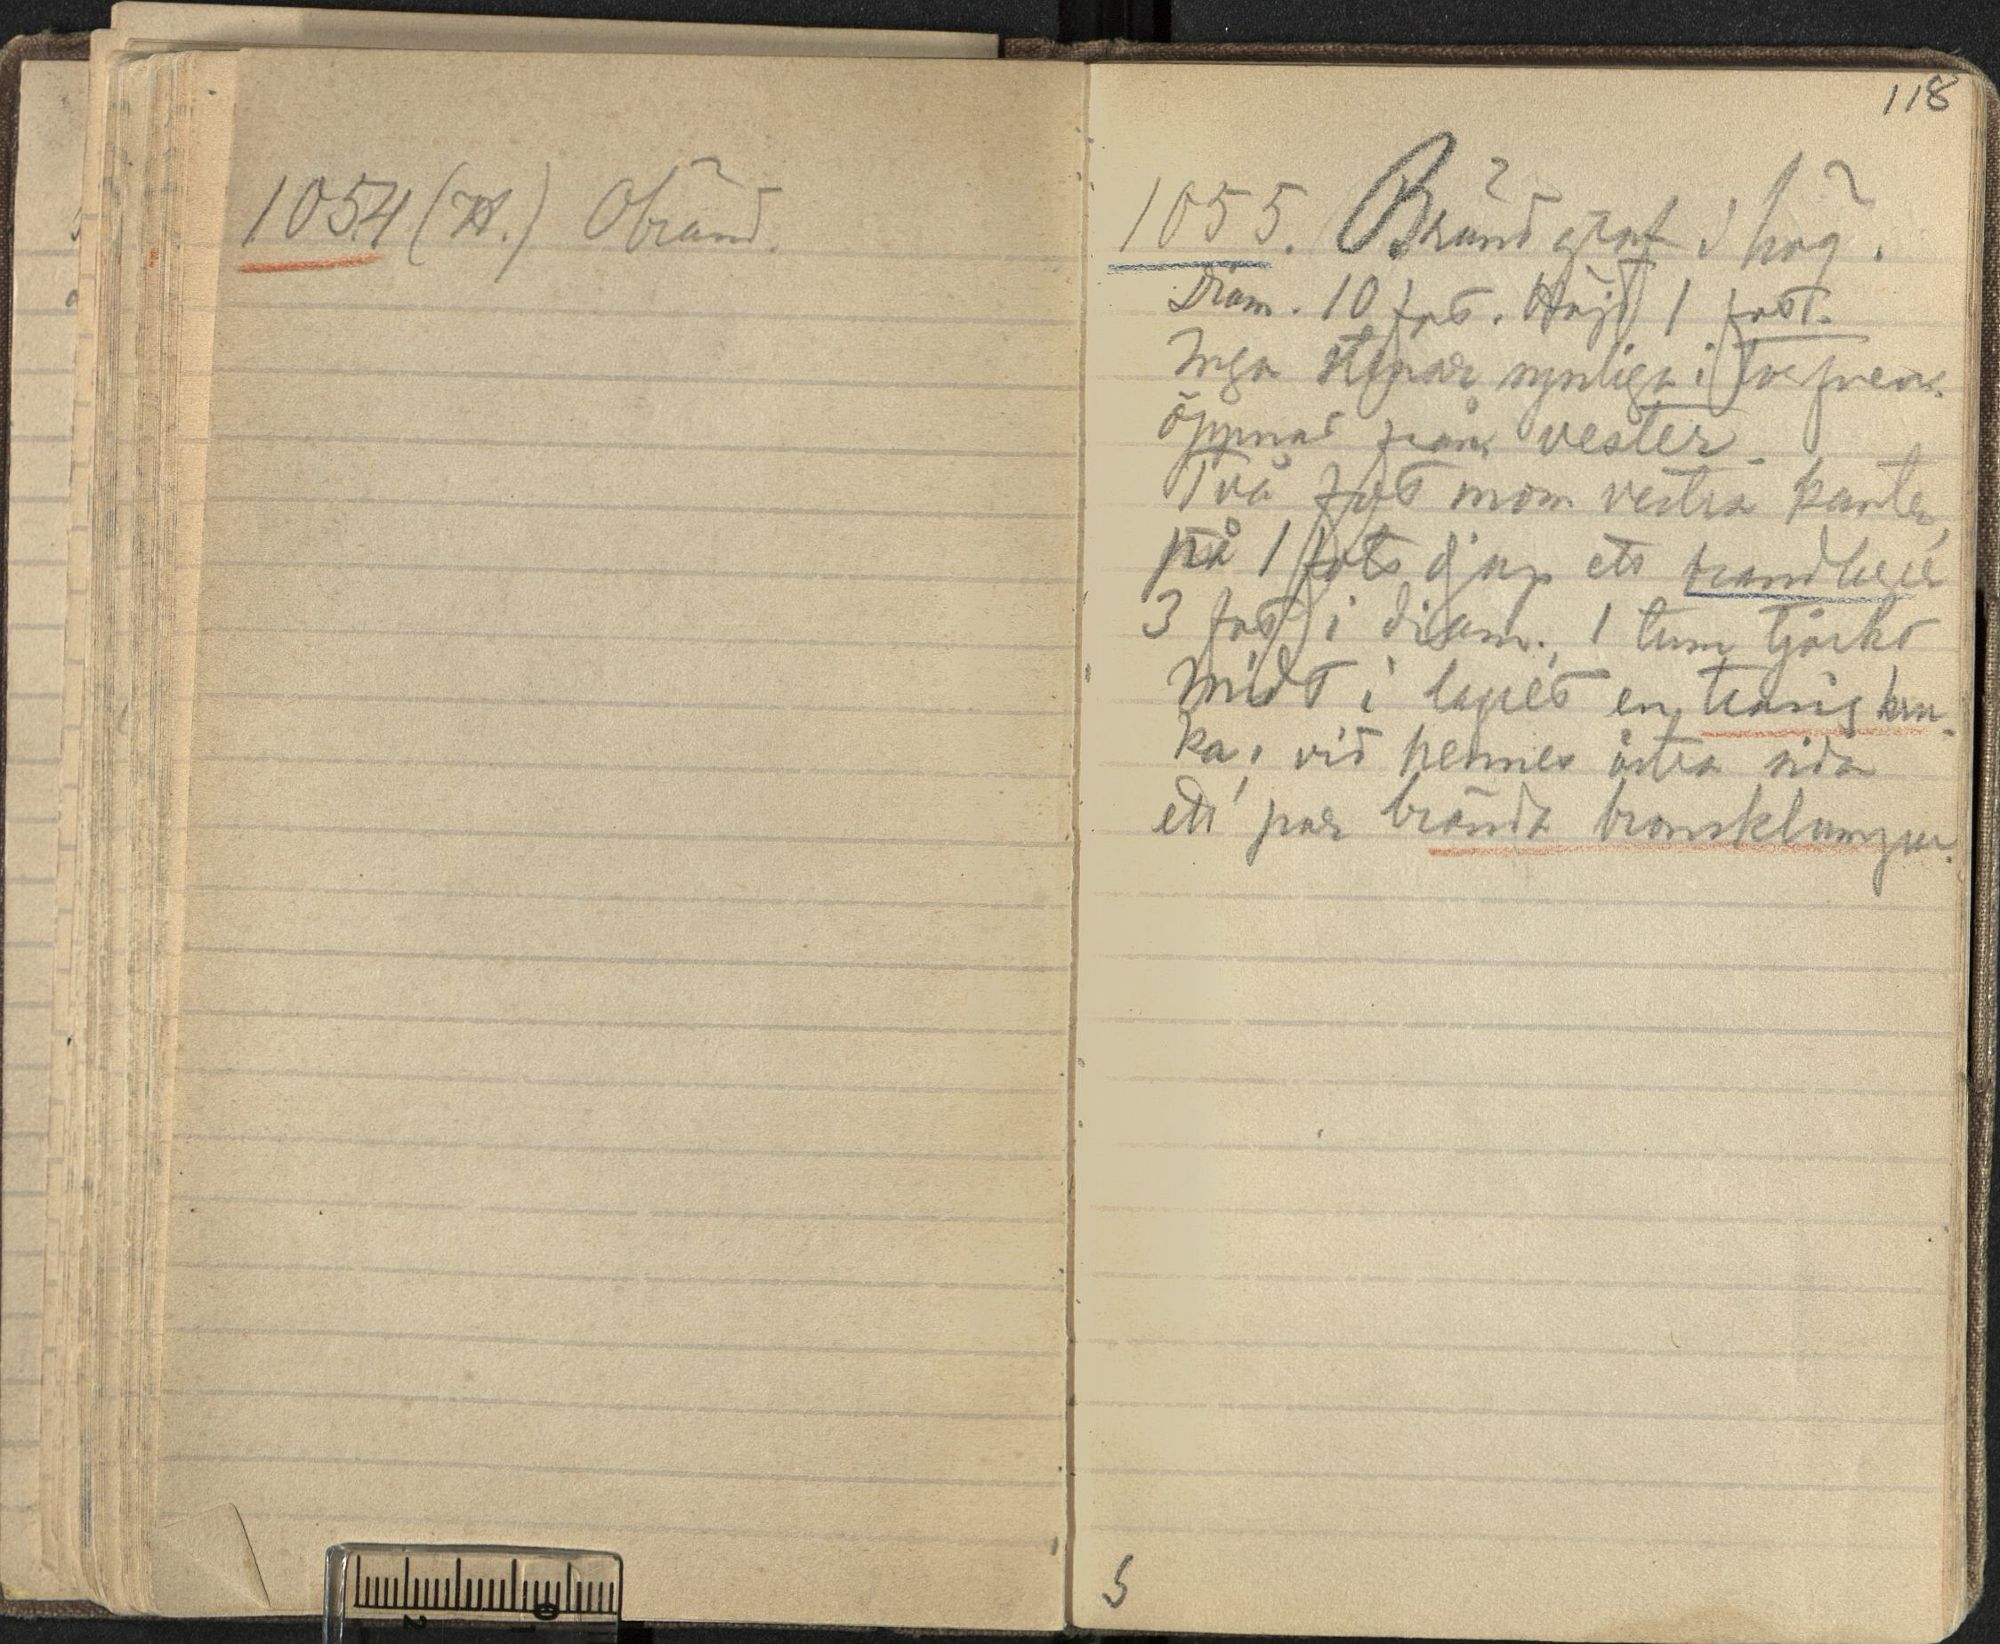 1054 (H.) Obränd.
118
1055. Bränd graf i hög.
Diam. 10 fot. Höjd 1 fot.
Inga stenar synliga i
öppnad från vester.
Två fot inom vestra kanten,
på 1 fots djup ett brandlager
3 fot i diam., 1 tum tjockt
Midt i lagret en trasig kru-
ka, vid hennes östra sida
ett par brända bronsklumpar.
S
2 0